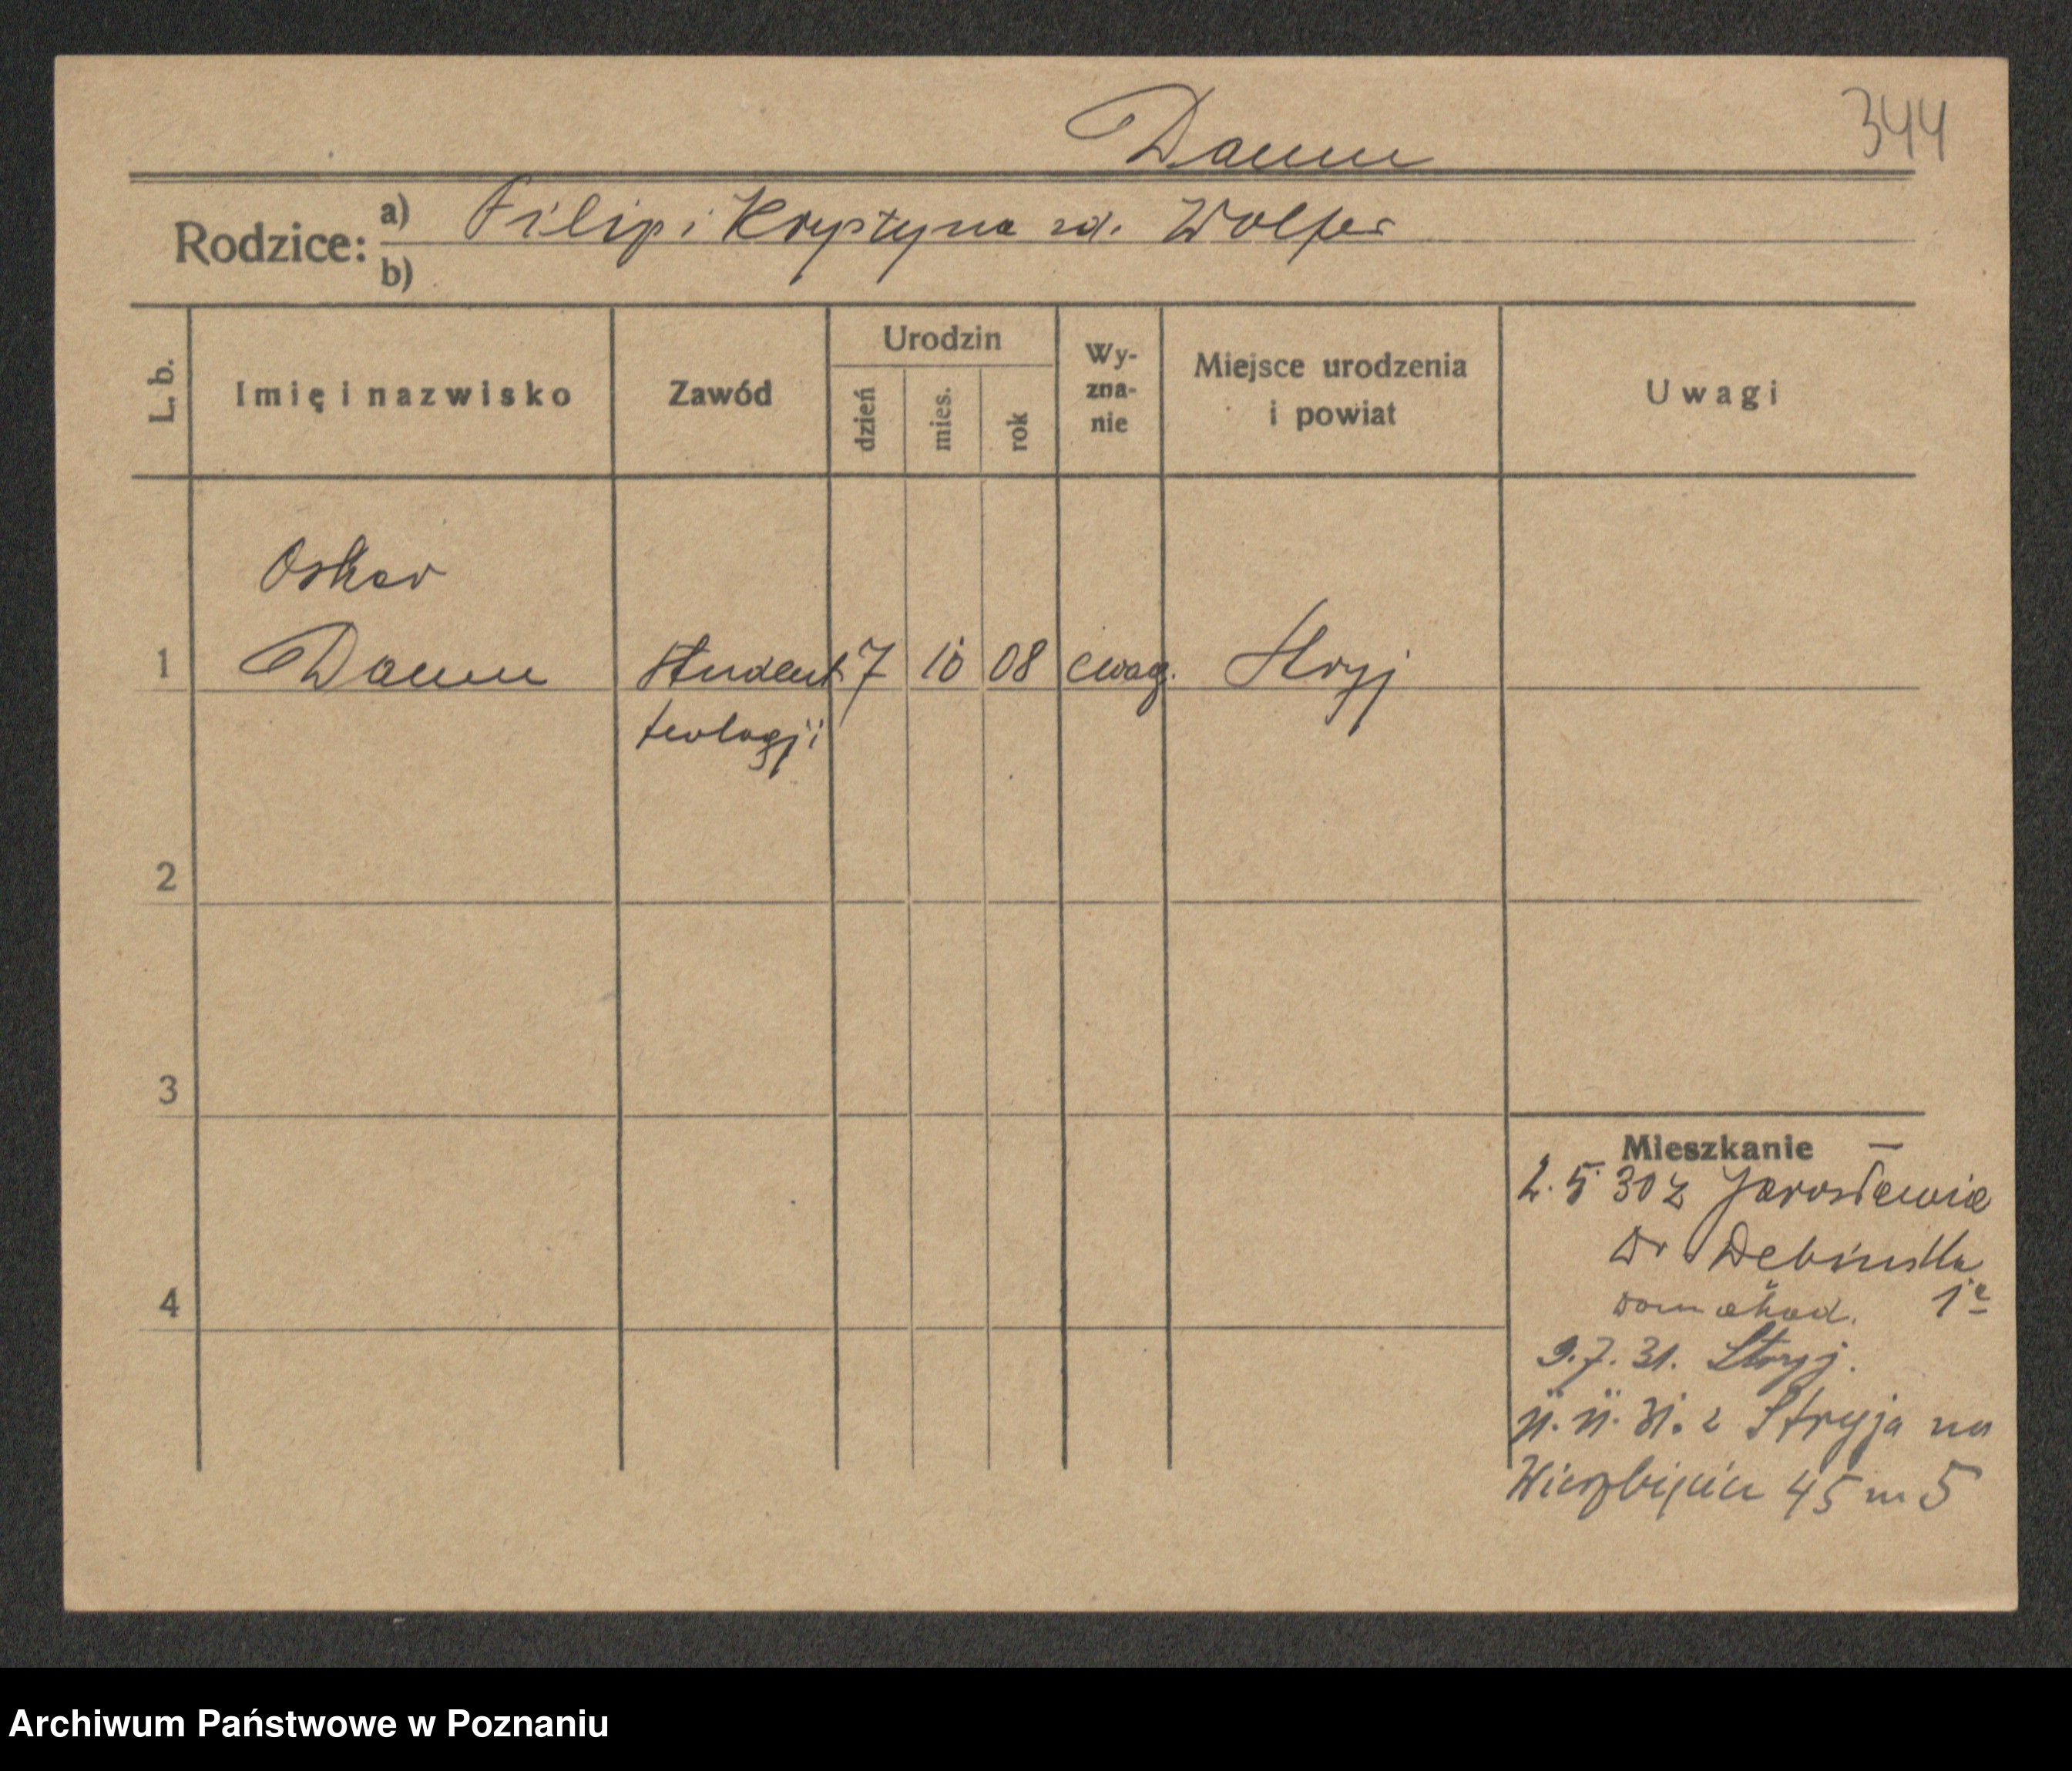 344
Daum
Rodzice: a) Filip i Krystyna zd. Wolfer
b)
L. b. Imię i nazwisko Zawód Urodzin dzień mies. rok Wyzna-nie Miejsce urodzenia i powiat Uwagi
Oskar
1 Daum student 7 10 08 ewag. Stryj
teologji
2
3
4
Mieszkanie
2. 5 30 z Jarosławia
Dr
dom akad. 1
9.7.31. Stryj.
11. 11. 31. z Stryja na
45 m 5
Archiwum Państwowe w Poznaniu